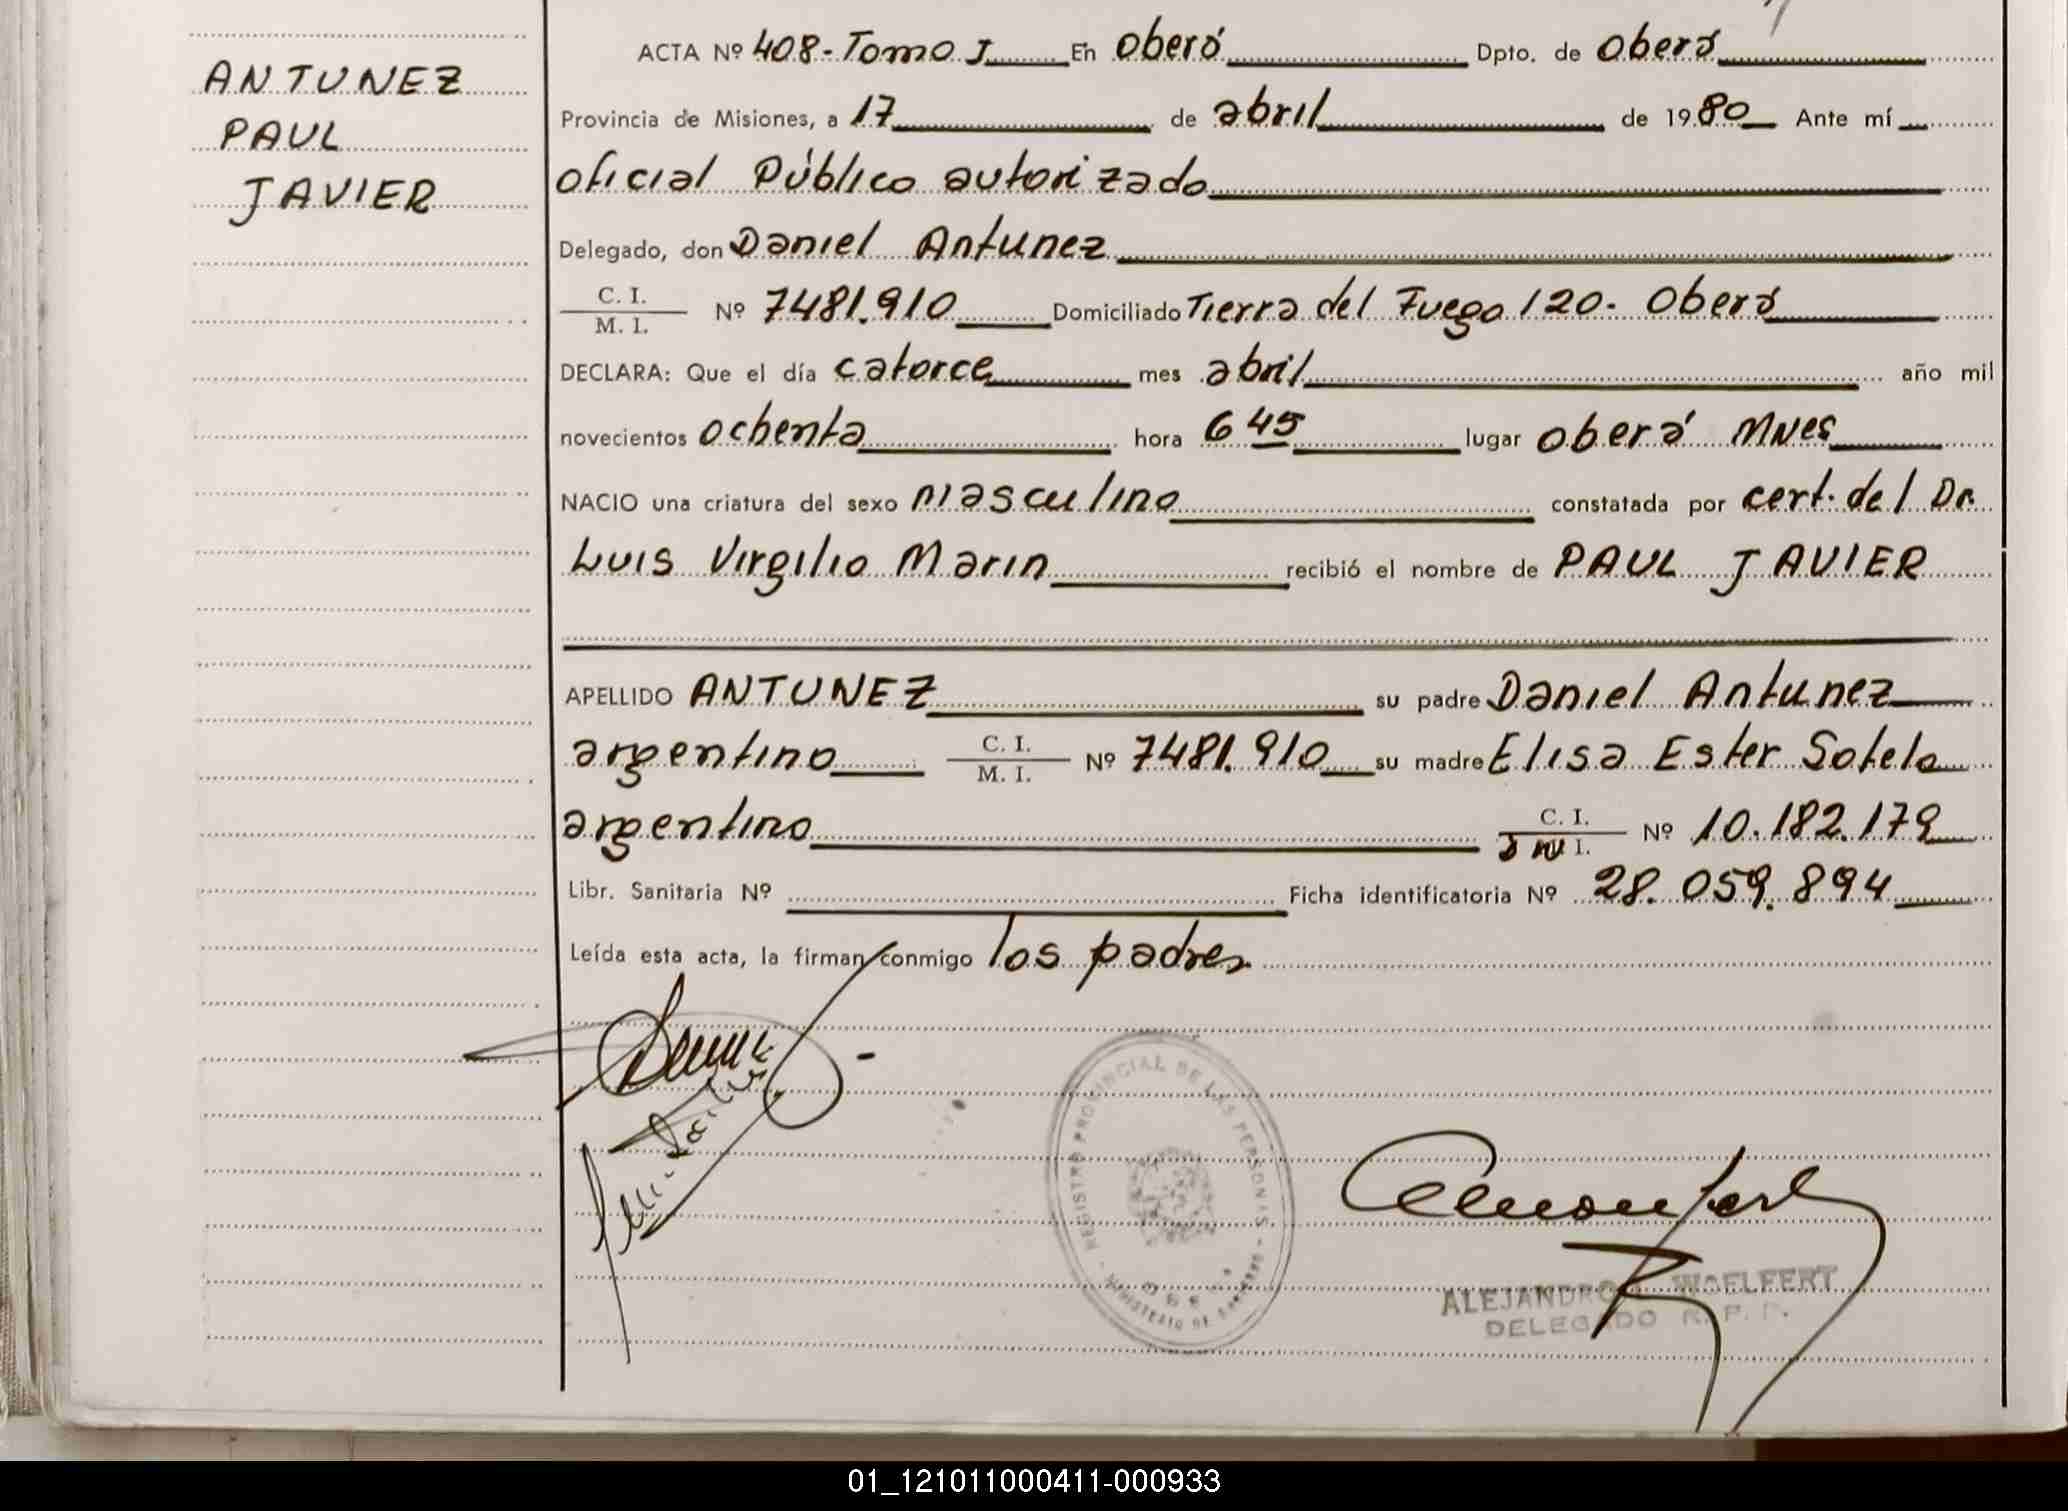 ANTUNEZ
PAUL
JAVIER
ACTA Nº 408-Tomo I En Oberá Dpto. de Oberá
Provincia de Misiones, a 17 de abril de 1980 Ante mí
Oficial Público autorizado
Delegado, don Daniel Antunez
C. I.
M. I.
Nº 7481.910 Domiciliado Tierra del Fuego 120. Oberá
DECLARA: Que el día catorce mes abril año mil
novecientos ochenta hora 6 45 lugar Oberá Mnes
NACIO una criatura del sexo masculino constatada por cert. del Dr.
Luis Virgilio Marin recibió el nombre de PAUL JAVIER
APELLIDO ANTUNEZ su padre Daniel Antunez
argentino C. I.
M. I.
Nº 7481.910 su madre Elisa Ester Sotelo
argentino C. I.
I.
Nº 10.182.179
Libr. Sanitaria Nº Ficha identificatoria Nº 28.059.894
Leída esta acta, la firman conmigo los padres
REGISTRO PROVINCIAL DE LAS PERSONAS
MINISTERIO DE GOBIERNO
ALEJANDRO WOELFERT
DELEGADO R. P. P.
01_121011000411-000933